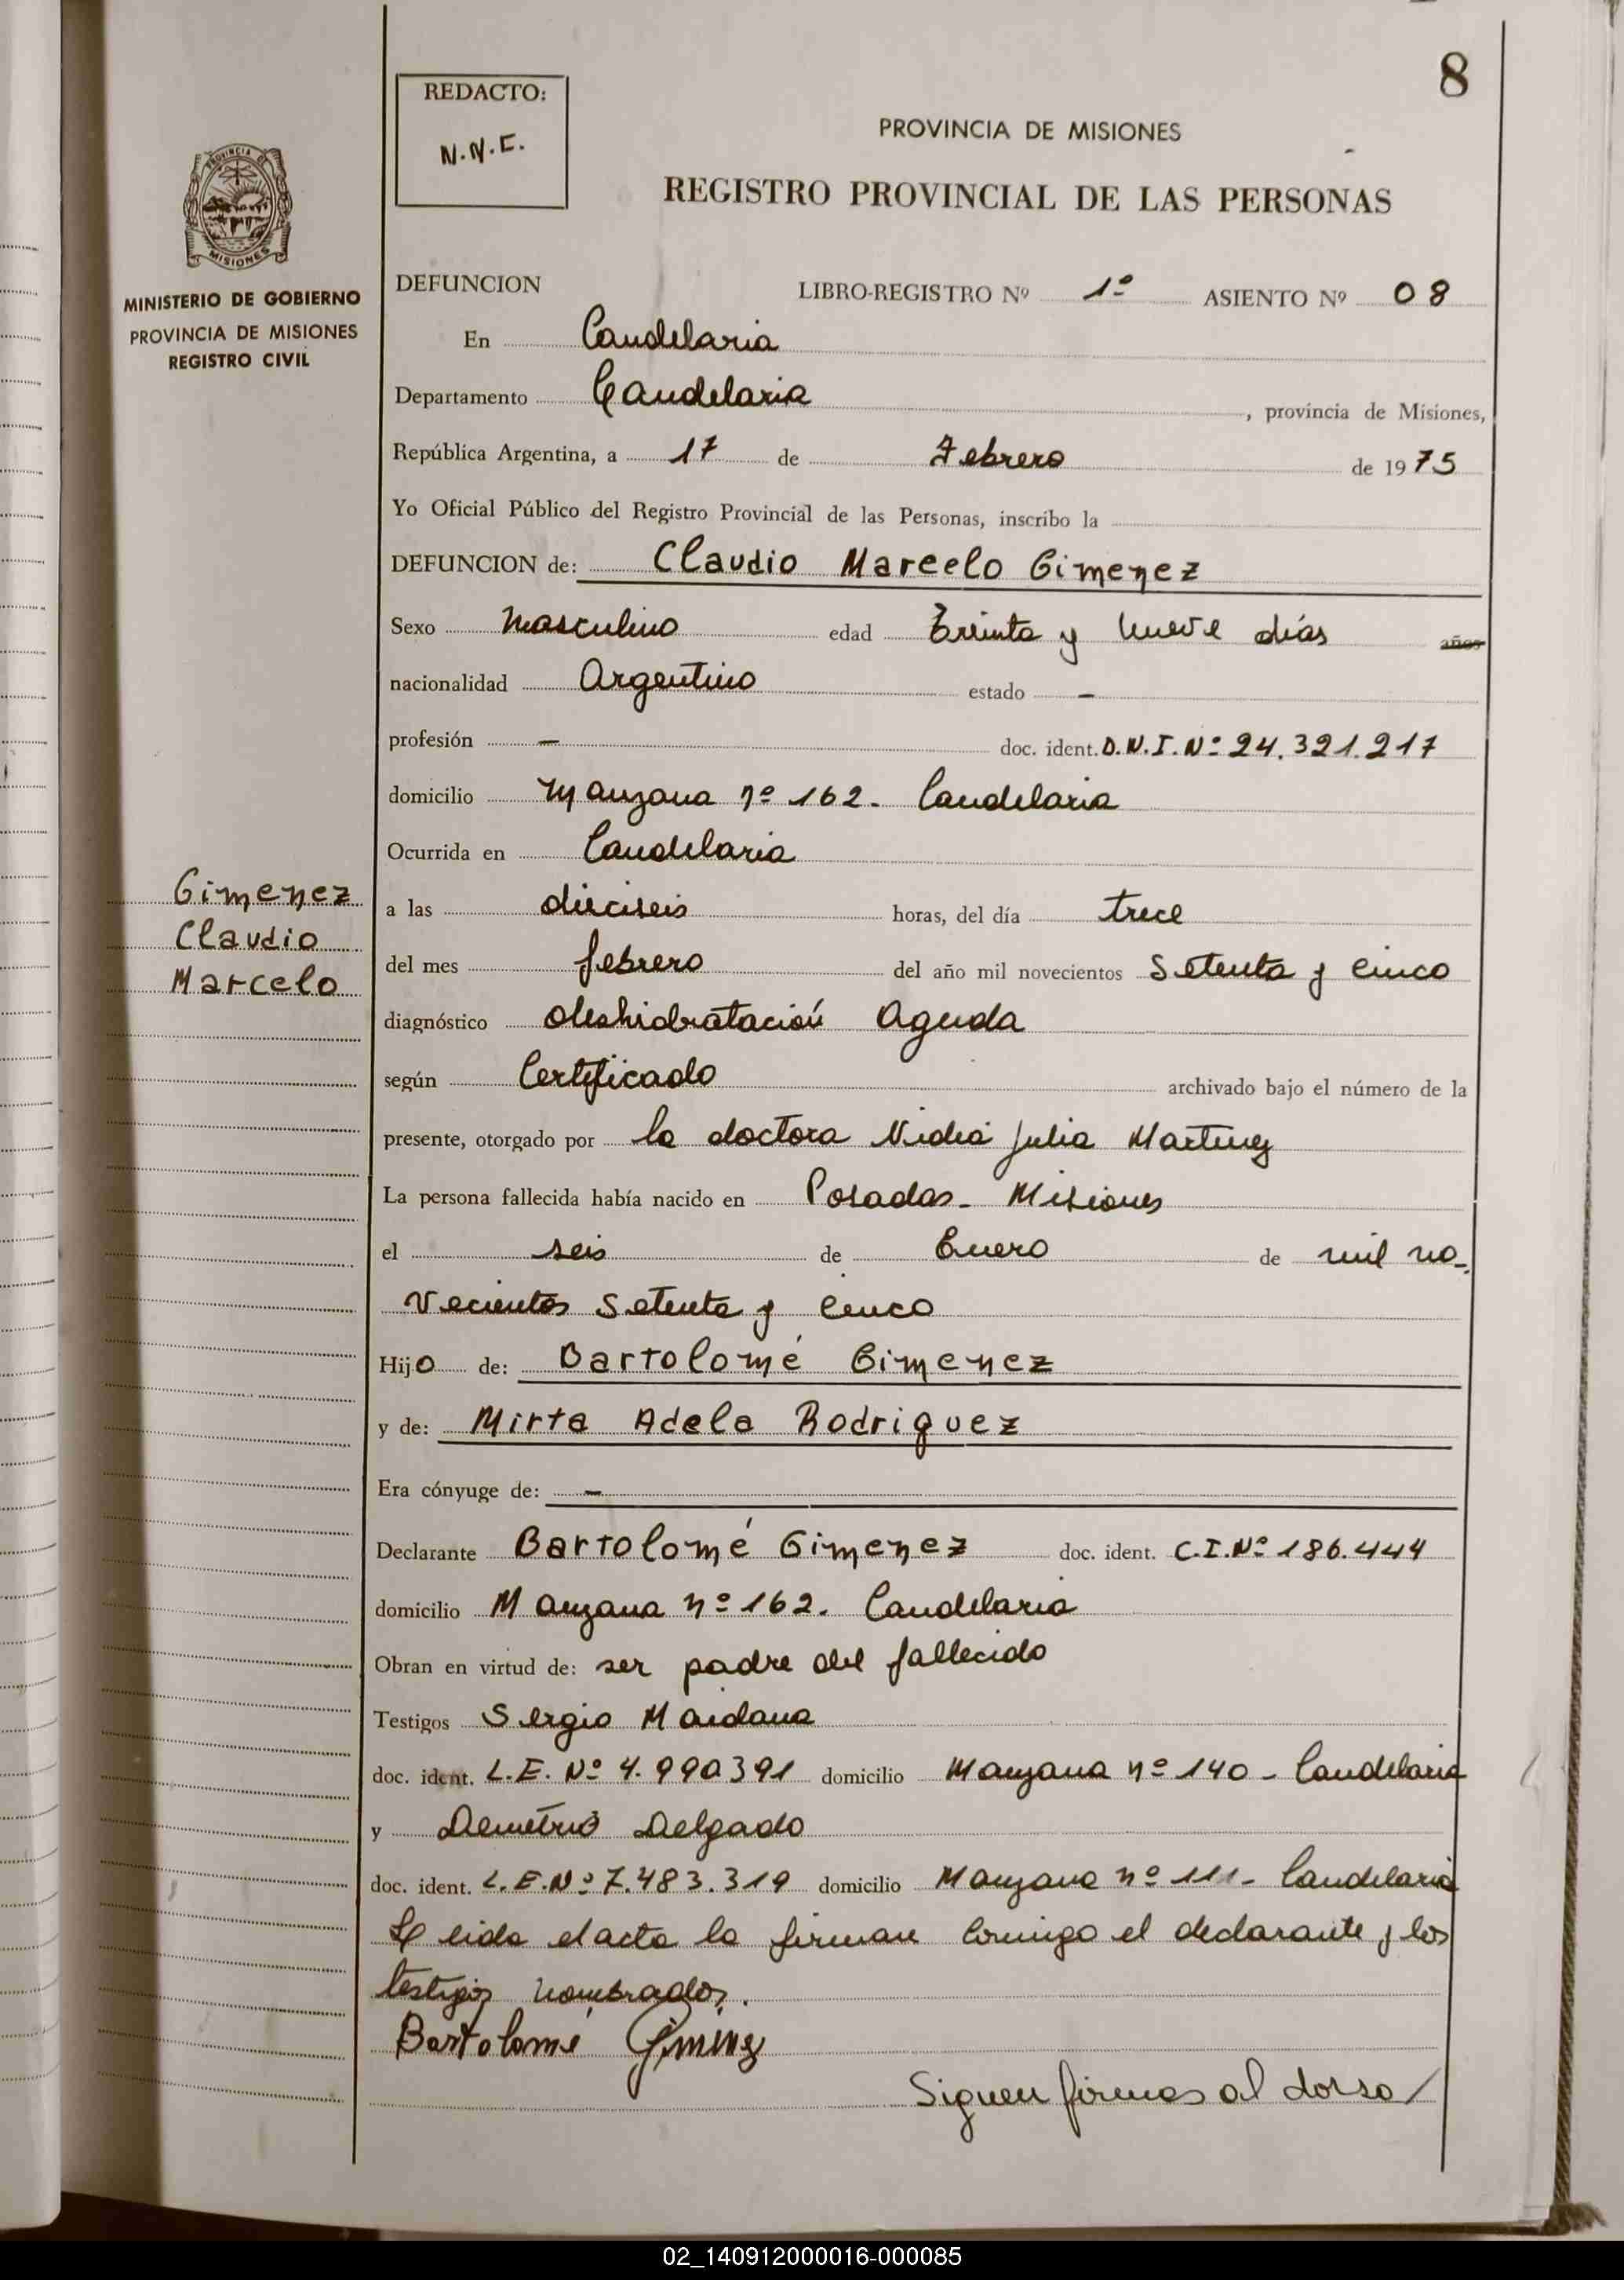 8
REDACTO:
N.N.E.
PROVINCIA DE MISIONES
REGISTRO PROVINCIAL DE LAS PERSONAS
PROVINCIA DE MISIONES
MINISTERIO DE GOBIERNO
PROVINCIA DE MISIONES
REGISTRO CIVIL
DEFUNCION LIBRO-REGISTRO Nº 1º ASIENTO Nº 08
En Candelaria
Departamento Candelaria, provincia de Misiones,
República Argentina, a 17 de Febrero de 1975
Yo Oficial Público del Registro Provincial de las Personas, inscribo la
DEFUNCION de: Claudio Marcelo Gimenez
Sexo Masculino edad Treinta y nueve días años
nacionalidad Argentino estado -
profesión - doc. ident. D.N.I. Nº 24.321.217
domicilio Manzana nº 162. Candelaria
Ocurrida en Candelaria
Gimenez
Claudio
Marcelo
a las dieciseis horas, del día trece
del mes febrero del año mil novecientos Setenta y cinco
diagnóstico deshidratación Aguda
según Certificado archivado bajo el número de la
presente, otorgado por la doctora Nidia Julia Martinez
La persona fallecida había nacido en Posadas - Misiones
el seis de Enero de mil no-
vecientos Setenta y cinco
Hijo de: Bartolomé Gimenez
y de: Mirta Adela Rodriguez
Era cónyuge de: -
Declarante Bartolomé Gimenez doc. ident. C.I. Nº 186.444
domicilio Manzana nº 162. Candelaria
Obran en virtud de: ser padre del fallecido
Testigos Sergio Maidana
doc. ident. L.E. Nº 4.990391 domicilio Manzana nº 140 - Candelaria
y Demetrio Delgado
doc. ident. L.E. Nº 7.483.319 domicilio Manzana nº 111 - Candelaria
Leida el acta la firman conmigo el declarante y los
testigos nombrados.
Bartolomé Giminez
Siguen firmas al dorso/
02_140912000016-000085